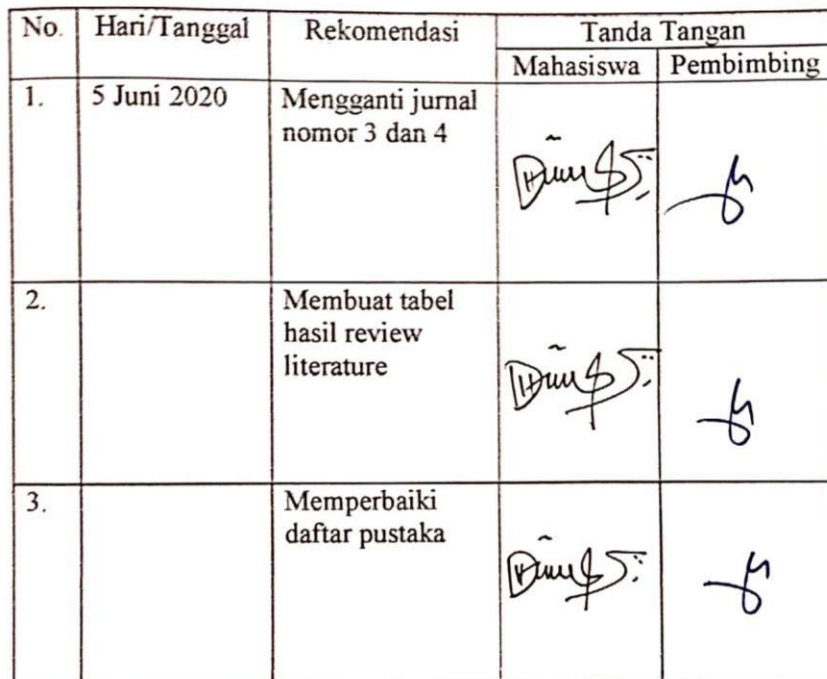 No. Hari/Tanggal Rekomendasi Tanda Tangan
Mahasiswa Pembimbing
1. 5 Juni 2020 Mengganti jurnal
nomor 3 dan 4
2. Membuat tabel
hasil review
literature
3. Memperbaiki
daftar pustaka